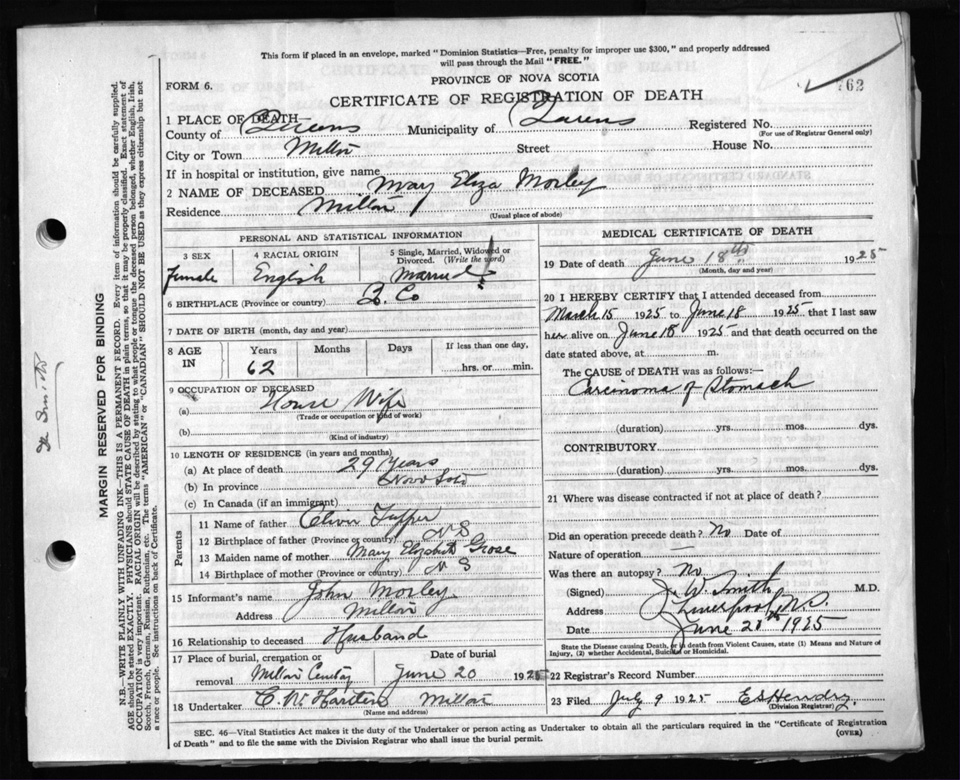 This form if placed in an envelope, marked "Dominion Statistics—Free, penalty for improper use $300," and properly addressed
will pass through the Mail "FREE."
PROVINCE OF NOVA SCOTIA
FORM 6.
762
CERTIFICATE OF REGISTRATION OF DEATH
1 PLACE OF DEATH—
County of Queens Municipality of Queens Registered No.
(For use of Registrar General only)
City or Town Milton Street House No.
If in hospital or institution, give name
2 NAME OF DECEASED Mary Eliza Morley
Residence Milton
(Usual place of abode)
PERSONAL AND STATISTICAL INFORMATION
3 SEX 4 RACIAL ORIGIN 5 Single, Married, Widowed or
Divorced. (Write the word)
Female English Married
6 BIRTHPLACE (Province or country) Q. Co
7 DATE OF BIRTH (month, day and year)
8 AGE IN Years Months Days If less than one day,
62 hrs. or min.
9 OCCUPATION OF DECEASED
(a) House Wife
(Trade or occupation or kind of work)
(b)
(Kind of industry)
10 LENGTH OF RESIDENCE (in years and months)
(a) At place of death 29 Years
(b) In province
(c) In Canada (if an immigrant)
Parents
11 Name of father Oliver Tupper
12 Birthplace of father (Province or country) N S
13 Maiden name of mother Mary Elizabeth Grose
14 Birthplace of mother (Province or country) N S
15 Informant's name John Morley
Address Milton
16 Relationship to deceased Husband
17 Place of burial, cremation or removal Date of burial
Milton June 20 1925
18 Undertaker C. W. Milton
(Name and address)
MEDICAL CERTIFICATE OF DEATH
19 Date of death June 18th 1925
(Month, day and year)
20 I HEREBY CERTIFY that I attended deceased from
March 15 1925 to June 18 1925 that I last saw
her alive on June 18 1925 and that death occurred on the
date stated above, at m.
The CAUSE of DEATH was as follows:—
Carcinoma of Stomach
(duration) yrs. mos. dys.
CONTRIBUTORY
(duration) yrs. mos. dys.
21 Where was disease contracted if not at place of death?
Did an operation precede death? No Date of
Nature of operation —
Was there an autopsy? No
(Signed) J. W. Smith M.D.
Address Liverpool N.S.
Date June 1925
State the Disease causing Death, or in death from Violent Causes, state (1) Means and Nature of
Injury, (2) whether Accidental, Suicidal or Homicidal.
22 Registrar's Record Number
23 Filed July 9 1925 E S Hendry
(Division Registrar)
SEC. 46—Vital Statistics Act makes it the duty of the Undertaker or person acting as Undertaker to obtain all the particulars required in the "Certificate of Registration
of Death" and to file the same with the Division Registrar who shall issue the burial permit.
(OVER)
MARGIN RESERVED FOR BINDING
N.B.—WRITE PLAINLY WITH UNFADING INK—THIS IS A PERMANENT RECORD. Every item of information should be carefully supplied.
AGE should be stated EXACTLY. PHYSICIANS should STATE CAUSE OF DEATH in plain terms, so that it may be properly classified. Exact statement of
OCCUPATION is very important. RACIAL ORIGIN will be described by stating to what people or tongue the deceased person belonged, whether English, Irish,
Scotch, French, German, Russian, Ruthenian, etc. The terms "AMERICAN" or "CANADIAN" SHOULD NOT BE USED as they express citizenship but not
a race or people. See instructions on back of Certificate.
Smith